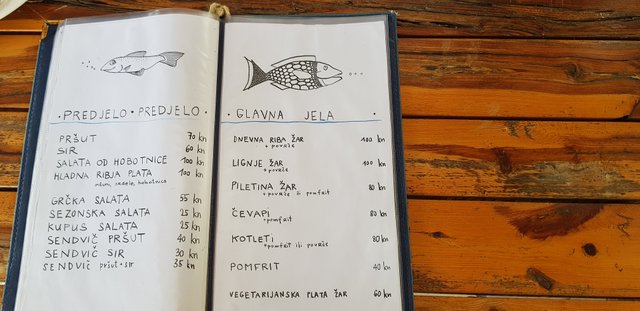 • PREDJELO • PREDJELO •
PRŠUT 70 kn
SIR 60 kn
SALATA OD HOBOTNICE 100 kn
HLADNA RIBJA PLATA 100 kn
hobotnica
GRČKA SALATA 55 kn
SEZONSKA SALATA 25 kn
KUPUS SALATA 25 kn
SENDVIČ PRŠUT 40 kn
SENDVIČ SIR 30 kn
SENDVIČ pršut+sir 35 kn
• GLAVNA JELA •
DNEVNA RIBA ŽAR 100 kn
+ povrće
LIGNJE ŽAR 100 kn
+ povrće
PILETINA ŽAR 80 kn
+ povrće ili pomfrit
ČEVAPI 80 kn
+pomfrit
KOTLETI 80 kn
+pomfrit ili povrće
POMFRIT 40 kn
VEGETARIJANSKA PLATA ŽAR 60 kn